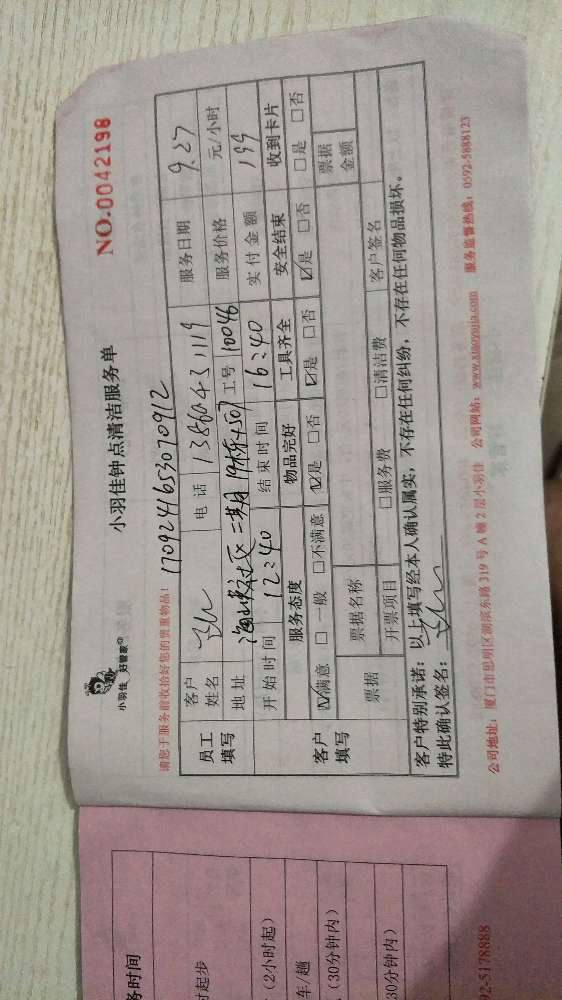 小羽佳 好管家
小羽佳钟点清洁服务单
NO.0042198
请您于服务前收拾好您的贵重物品!
1709241653070912
员工填写
客户姓名
电话
服务日期 9.27
地址
二期
工号 10046
服务价格 元/小时
开始时间 12:40
结束时间 16:40
实付金额 199
客户填写
服务态度
物品完好
工具齐全
安全结束
收到卡片
☑满意 □一般 □不满意
☑是 □否
☑是 □否
☑是 □否
□是 □否
票据
票据名称
票据金额
开票项目
□服务费
□清洁费
客户签名
客户特别承诺:以上填写经本人确认属实,不存在任何纠纷,不存在任何物品损坏。
特此确认签名:
公司地址:厦门市思明区湖滨东路 319 号 A 幢 2 层小羽佳 公司网站:www.xiaoyujia.com 服务监督热线:0592-5888123
务时间
时起步
(2小时起)
车/趟
(30分钟内)
30分钟内)
92-5178888